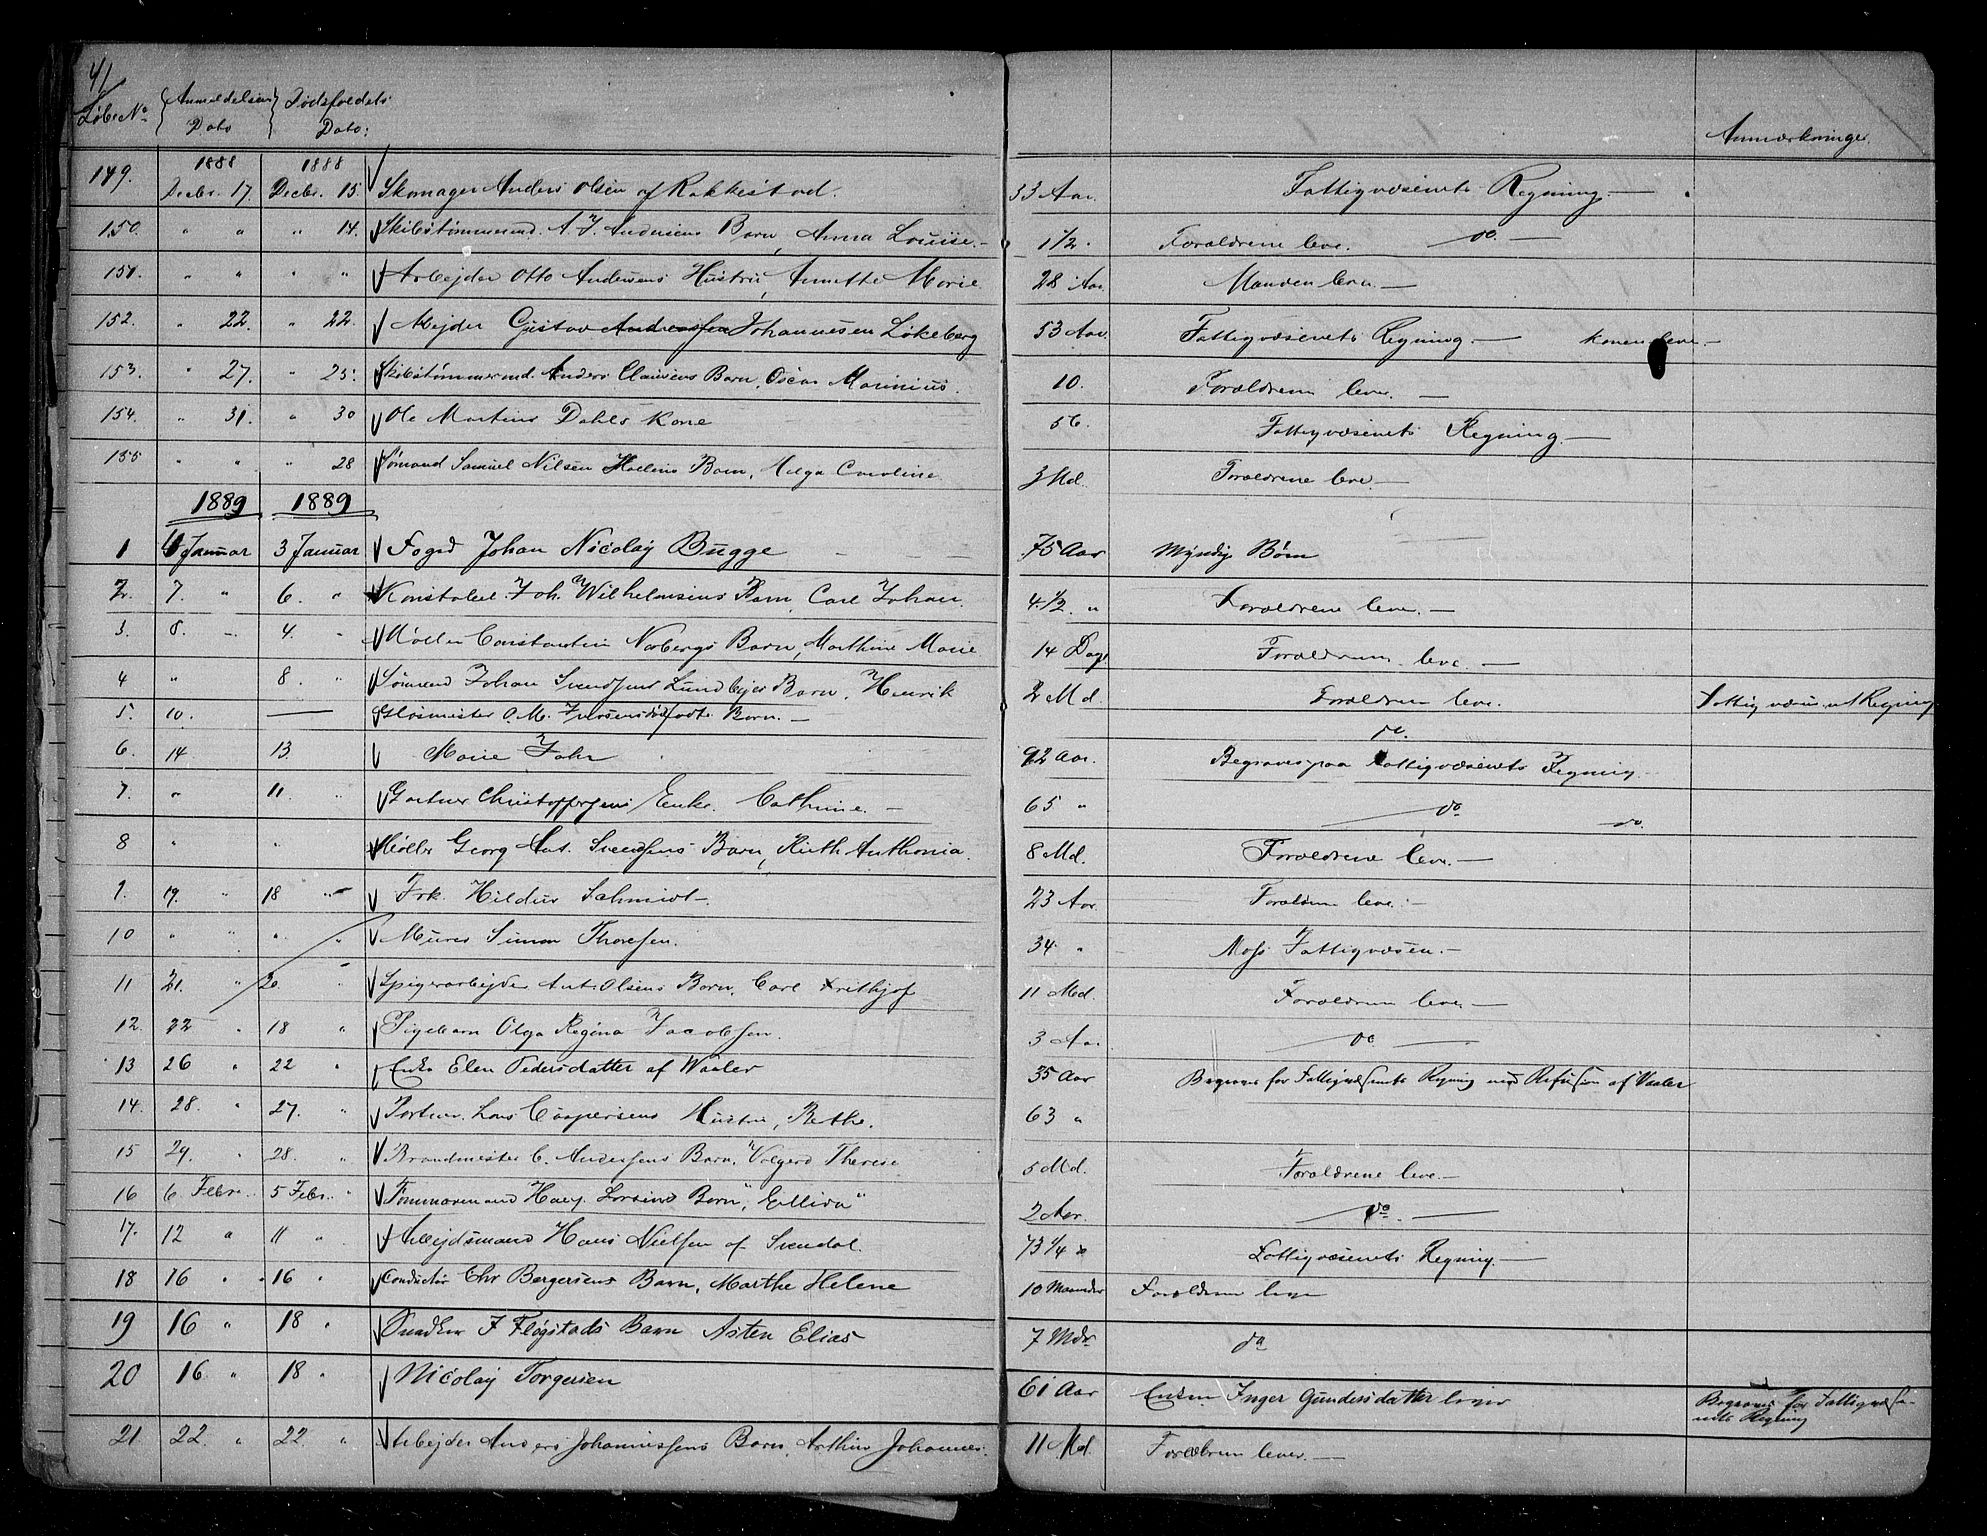 41
Løbe No Anmeldelsens Dato Dødsfaldets Dato: Anmærkninger
1888 1888
149. Decbr. 17. Decbr. 15. Skomager Anders Olsen af Rakkestad. 33 Aar. Fattigvæsenets Regning.—
150. " " " 14. Skibstømmermd. A. J. Andersens Barn, Anna Louise.— 1 1/2. Forældrene leve. do.—
151. " " " " Arbejder Otto Andersens Hustru, Annette Marie 28 Aar. Manden lever.—
152. " 22. " 22. Mejder Gustav Andersen Johannesen Løkeberg 53 Aar. Fattigvæsenets Regning.— konen lever.—
153. " 27. " 25. Skibstømmermd. Anders Clausens Barn, Oscar Marinius. 10. Forældrene lever.—
154. " 31. " 30 Ole Martins Dahls Kone 56. Fattigvæsenets Regning.—
155 " " " 28 Sømand Samuel Nilsen Barn, Helga Caroline 3 Md. Forældrene leve.—
1889 1889
1 4 Januar 3 Januar Foged Johan Nicolay Bugge 75 Aar Myndige Børn
2. 7. " 6. " Konstabel Joh. Wilhelmsens Barn, Carl Johan. 4 1/2 " Forældrene leve.—
3. 8. 4. Møller Constantin Norbergs Barn, Marthine Marie 14 Dage Forældrene leve.—
4 " 8. " Sømand Johan Svendsens Barn, Henrik 2 Md. Forældrene leve. Fattigvæsenets Regning
5. 10. — Glasmester O. M. Iversens dødfødte Barn.— do.
6. 14 13. Marie Fahr 92 Aar. Begraves paa Fattigvæsenets Regning
7. " 11. " Gartner Christoffersens Enke. Cathrine.— 65 " do do.
8 " " Møller Georg Ant. Svendsens Barn, Ruth Anthonia. 8 Md. Forældrene leve.—
9. 19. " 18 " Frk. Hildur Schmidt.— 23 Aar. Forældrene leve.—
10 " " " " Murer Simon Thoresen. 34. " Moss Fattigvæsen.—
11 21. " 20. " Spigerarbejder Ant. Olsens Barn, Carl Frithjof 11 Md. Forældrene leve.—
12. 22 " 18 " Pigebarn Olga Regina Jacobsen. 3 Aar. do. —
13 26 " 22 " Enke Elen Pedersdatter af Waaler 35 Aar Begraves for Fattigvæsenets Regning med Refusion af Vaaler
14. 28. " 27. " Lars Caspersens Hustru, Bethe. 63 "
15 29. " 28. " Brandmester C. Andersens Barn, "Valgerd Therese 5 Md. Forældrene leve.—
16 6 Febr. 5 Febr. " Tømmermand Larsens Barn, "Ellida" 2 Aar. do. —
17. 12 " 11 " Arbejdsmand Hans Nielsen af Svendal. 73 1/4 " Fattigvæsenets Regning.—
18 16 " 16 " Conductør Chr Bergersens Barn, Marthe Helene 10 Maaneder Forældrene leve
19 16 " 18 " Snedker J Fløgstads Barn Asten Elias 7 Mdr do
20 16 " 18 " Nicolay Torgersen 61 Aar Enken Inger Gundersdatter lever Begraves for Fattigvæse-
nets Regning
21 22 " 22 " Arbejder Anders Johannessens Barn, Arthur Johannes. 11 Md. Forældrene lever.—